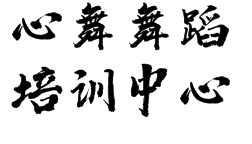 心舞舞蹈
培训中心